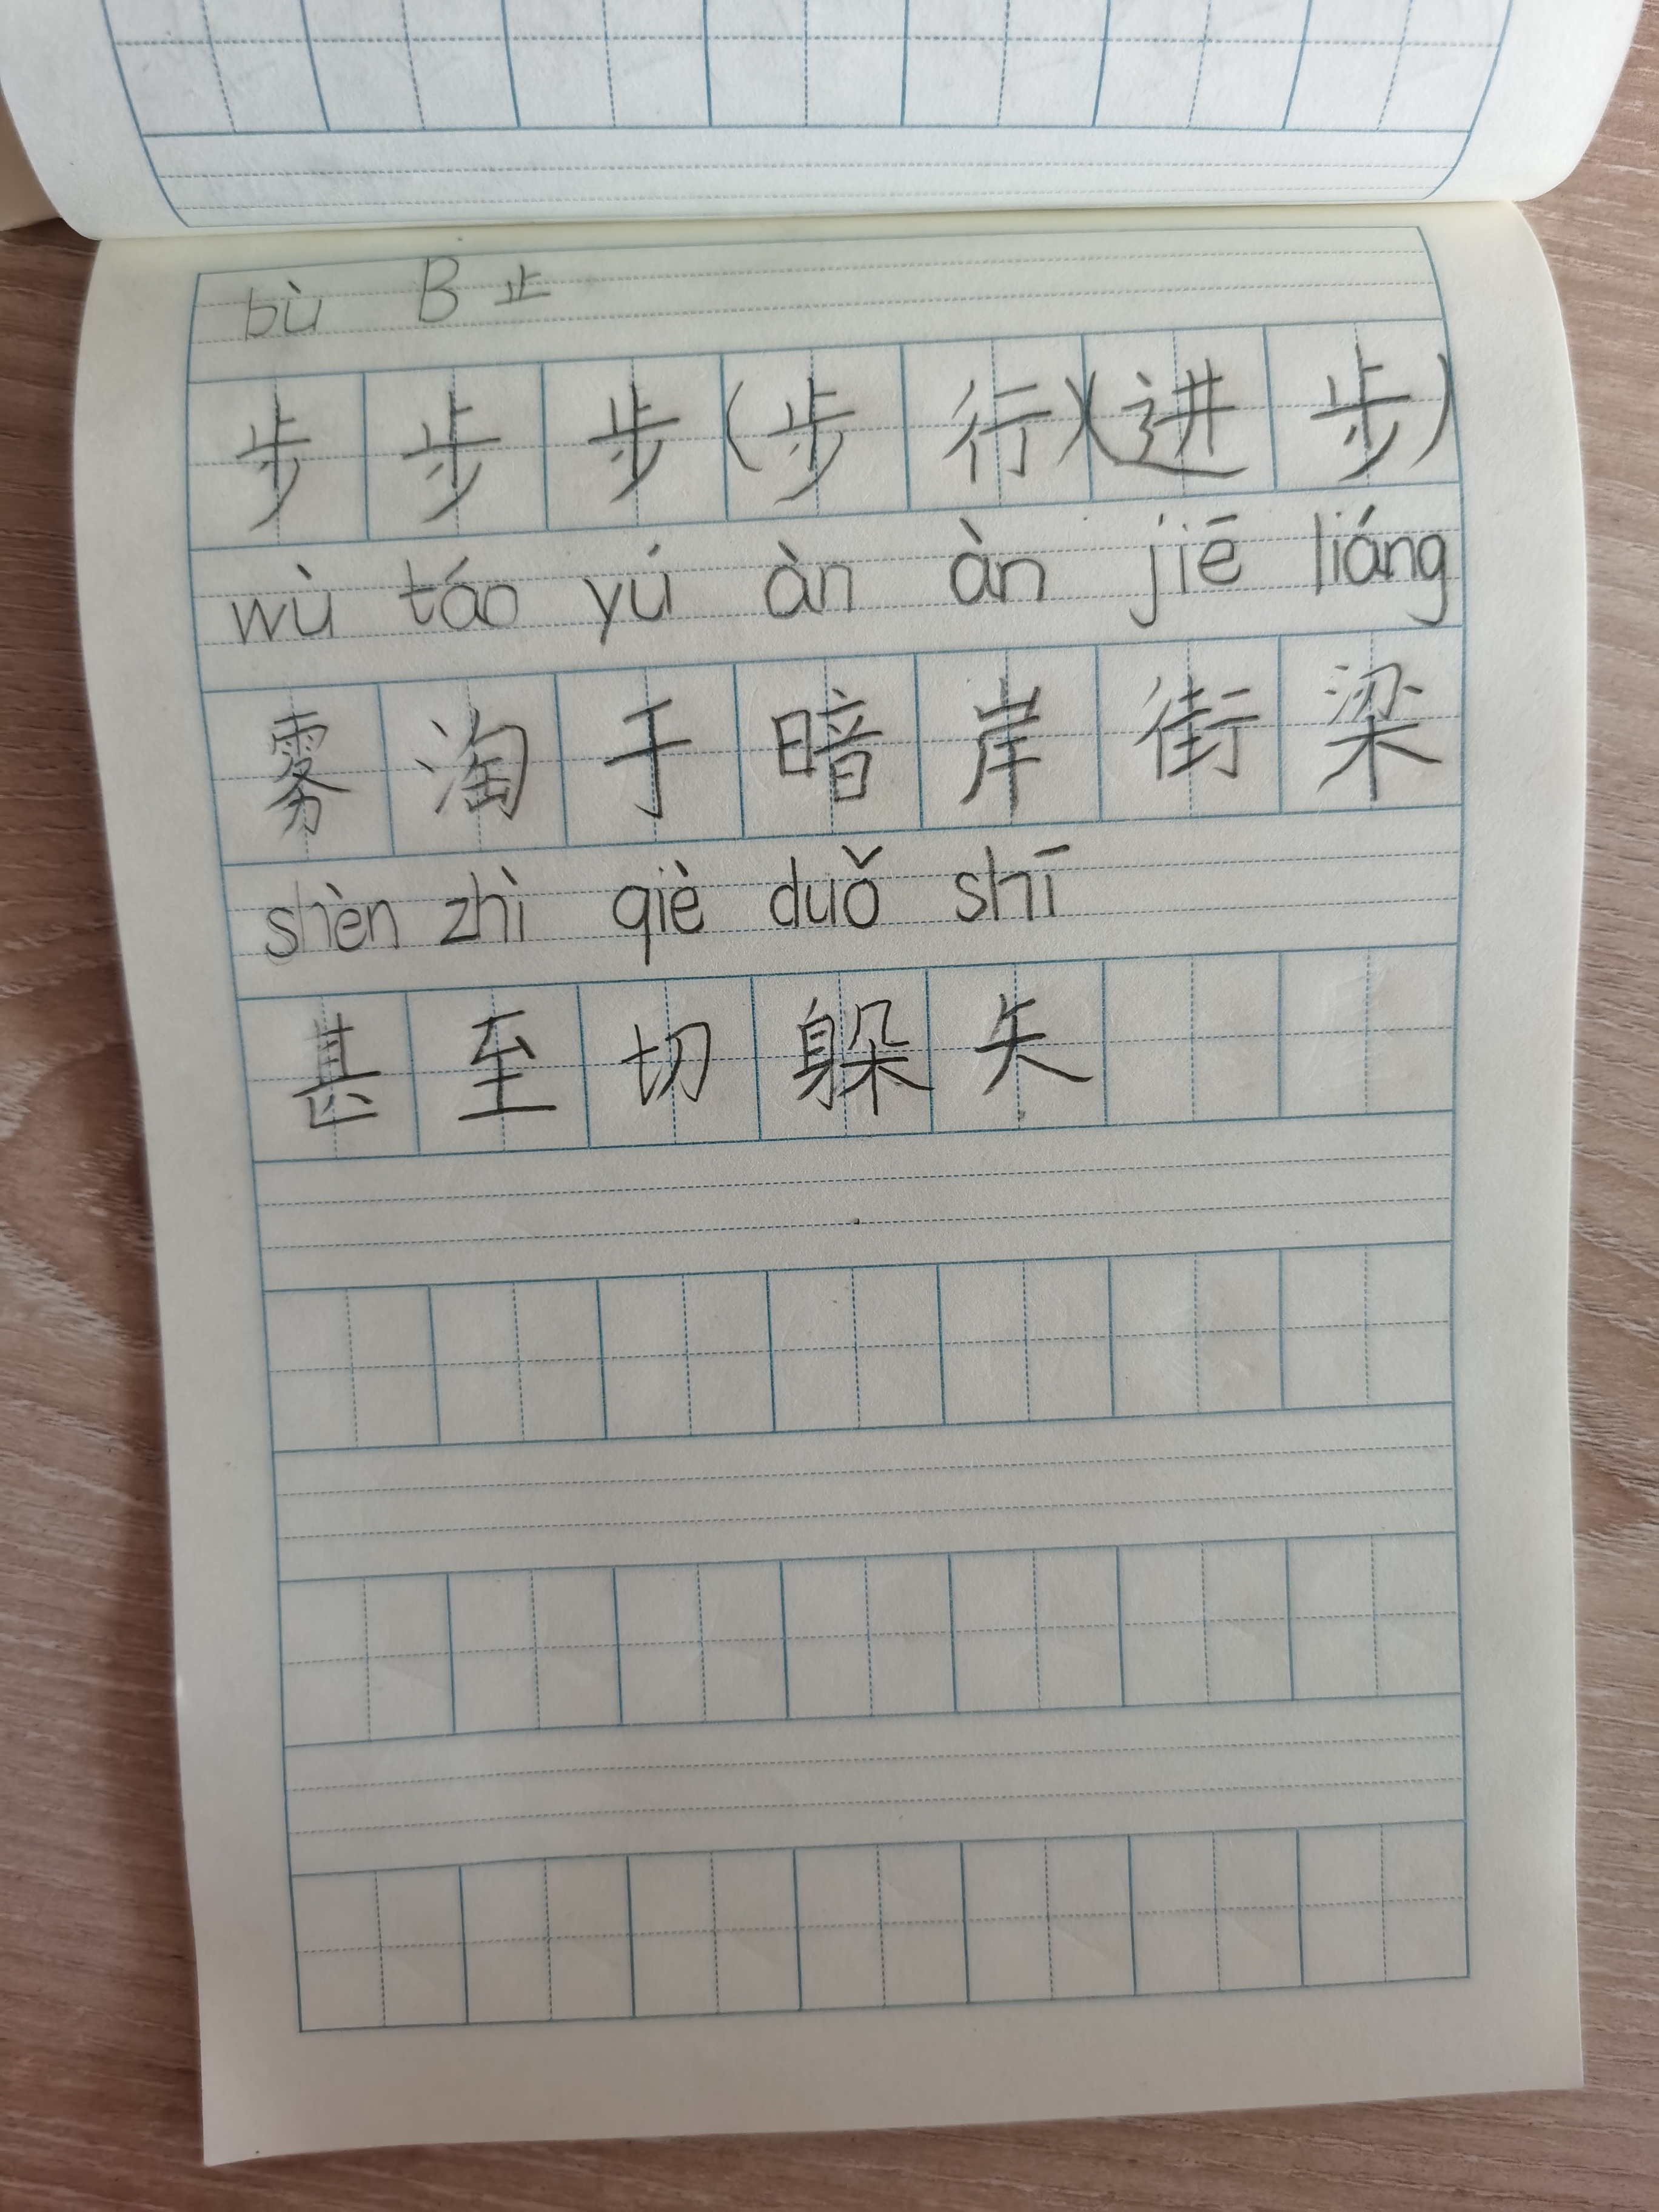 bù B 止
步步步(步行)(进步)
wù táo yú àn àn jiē liáng
雾淘于暗岸街梁
shèn zhì qiè duǒ shī
甚至切躲矢